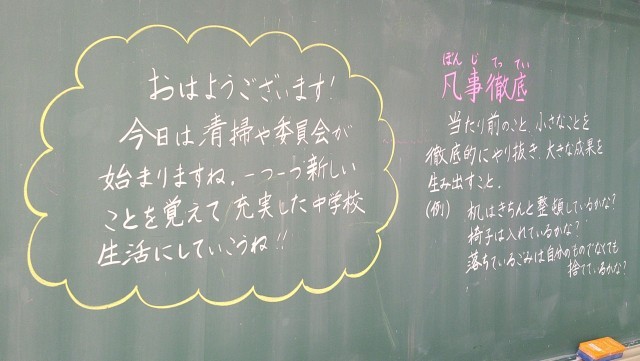 おはようございます!
今日は清掃や委員会が
始まりますね。一つ一つ新しい
ことを覚えて充実した中学校
生活にしていこうね!!
ぼんじてってい
凡事徹底
当たり前のこと、小さなことを
徹底的にやり抜き、大きな成果を
生み出すこと。
(例) 机はきちんと整頓しているかな?
椅子は入れているかな?
落ちているごみは自分のものでなくても
捨てているかな?